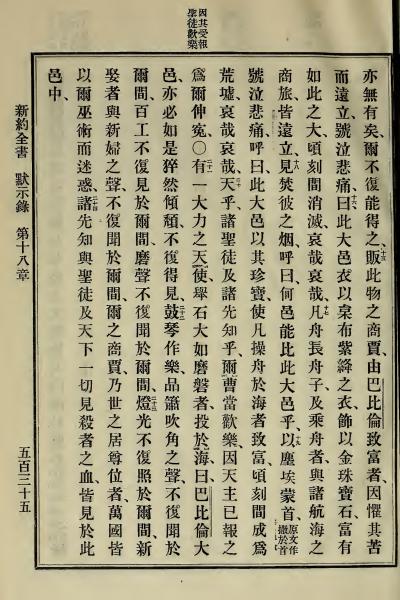 因其受報
聖徒歡樂
亦無有矣、爾不復能得之、十五販此物之商賈、由巴比倫致富者、因懼其苦
而遠立、號泣悲痛、十六曰、此大邑衣以枲布紫絳之衣、飾以金珠寶石、富有
如此之大、頃刻間消滅、哀哉哀哉、十七凡舟長舟子及乘舟者、與諸航海之
商旅、皆遠立、十八見焚彼之烟、呼曰、何邑能比此大邑乎、十九以塵埃蒙首、原文作撒於首
號泣悲痛、呼曰、此大邑以其珍寶、使凡操舟於海者致富、頃刻間成爲
荒墟、哀哉哀哉、二十天乎、諸聖徒及諸先知乎、爾曹當歡樂、因天主已報之、
爲爾伸冤、〇二十一有一大力之天使、舉石大如磨磐者、投於海曰、巴比倫大
邑、亦必如是猝然傾頹、不復得見、二十二鼓琴作樂、品簫吹角之聲、不復聞於
爾間、百工不復見於爾間、磨聲不復聞於爾間、二十三燈光不復照於爾間、新
娶者與新婦之聲、不復聞於爾間、爾之商賈、乃世之居尊位者、萬國皆
以爾巫術而迷惑、二十四諸先知與聖徒、及天下一切見殺者之血、皆見於此
邑中、
新約全書 默示錄 第十八章 五百三十五